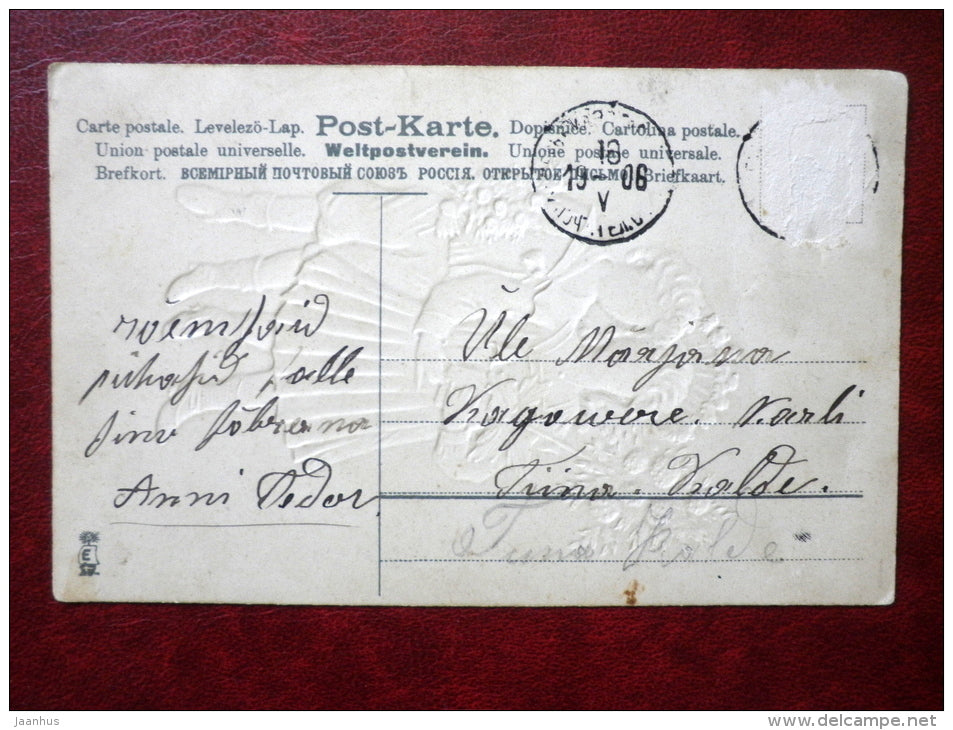 Carte postale. Levelezö-Lap. Post-Karte. Dopisnice. Cartolina postale.
Union postale universelle. Weltpostverein. Unione postale universale.
Brefkort. ВСЕМІРНЫЙ ПОЧТОВЫЙ СОЮЗЪ РОССІЯ. ОТКРЫТОЕ ПИСЬМО. Briefkaart.
19 06
V
rõemsaid
pühasid, alle
sinu sõbrana
Anni Fedor
Üle Marjama
Kagowere. Karli
Tiina. Kalde.
Tiina Kalde
E
Jaanhus
www.delcampe.net